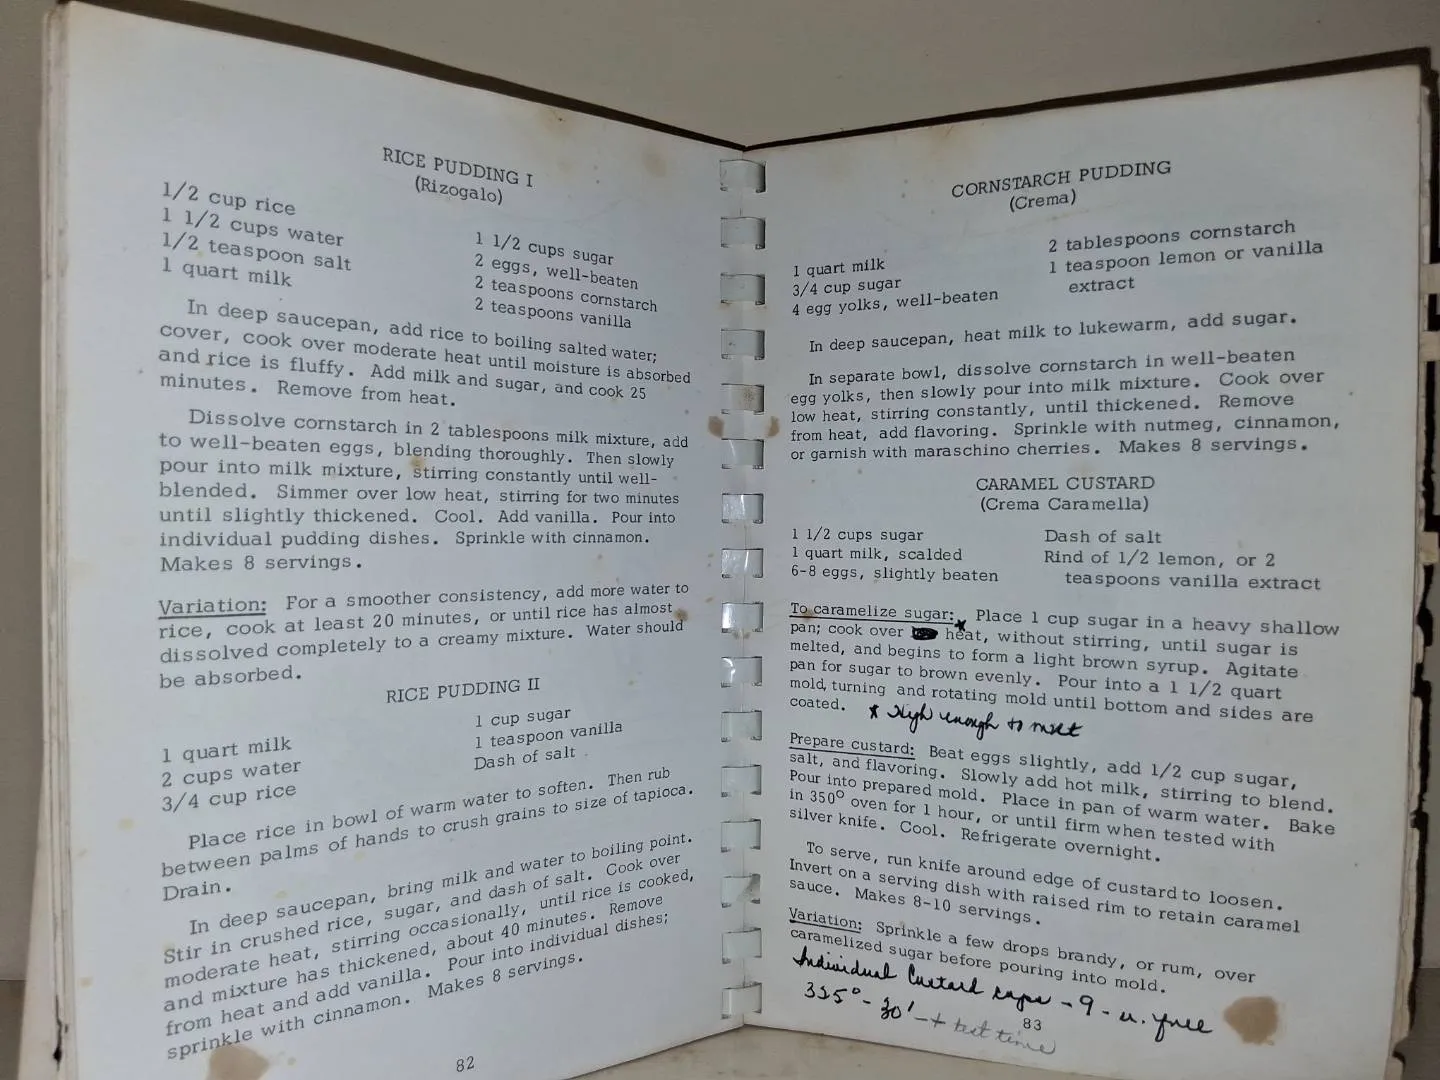 RICE PUDDING I
(Rizogalo)
1/2 cup rice
1 1/2 cups water
1/2 teaspoon salt
1 quart milk
1 1/2 cups sugar
2 eggs, well-beaten
2 teaspoons cornstarch
2 teaspoons vanilla
In deep saucepan, add rice to boiling salted water;
cover, cook over moderate heat until moisture is absorbed
and rice is fluffy. Add milk and sugar, and cook 25
minutes. Remove from heat.
Dissolve cornstarch in 2 tablespoons milk mixture, add
to well-beaten eggs, blending thoroughly. Then slowly
pour into milk mixture, stirring constantly until well-
blended. Simmer over low heat, stirring for two minutes
until slightly thickened. Cool. Add vanilla. Pour into
individual pudding dishes. Sprinkle with cinnamon.
Makes 8 servings.
Variation: For a smoother consistency, add more water to
rice, cook at least 20 minutes, or until rice has almost
dissolved completely to a creamy mixture. Water should
be absorbed.
RICE PUDDING II
1 quart milk
2 cups water
3/4 cup rice
1 cup sugar
1 teaspoon vanilla
Dash of salt
Place rice in bowl of warm water to soften. Then rub
between palms of hands to crush grains to size of tapioca.
Drain.
In deep saucepan, bring milk and water to boiling point.
Stir in crushed rice, sugar, and dash of salt. Cook over
moderate heat, stirring occasionally, until rice is cooked,
and mixture has thickened, about 40 minutes. Remove
from heat and add vanilla. Pour into individual dishes;
sprinkle with cinnamon. Makes 8 servings.
82
CORNSTARCH PUDDING
(Crema)
1 quart milk
3/4 cup sugar
4 egg yolks, well-beaten
2 tablespoons cornstarch
1 teaspoon lemon or vanilla
extract
In deep saucepan, heat milk to lukewarm, add sugar.
In separate bowl, dissolve cornstarch in well-beaten
egg yolks, then slowly pour into milk mixture. Cook over
low heat, stirring constantly, until thickened. Remove
from heat, add flavoring. Sprinkle with nutmeg, cinnamon,
or garnish with maraschino cherries. Makes 8 servings.
CARAMEL CUSTARD
(Crema Caramella)
1 1/2 cups sugar
1 quart milk, scalded
6-8 eggs, slightly beaten
Dash of salt
Rind of 1/2 lemon, or 2
teaspoons vanilla extract
To caramelize sugar:* Place 1 cup sugar in a heavy shallow
pan; cook over heat, without stirring, until sugar is
melted, and begins to form a light brown syrup. Agitate
pan for sugar to brown evenly. Pour into a 1 1/2 quart
mold, turning and rotating mold until bottom and sides are
coated. * High enough to melt
Prepare custard: Beat eggs slightly, add 1/2 cup sugar,
salt, and flavoring. Slowly add hot milk, stirring to blend.
Pour into prepared mold. Place in pan of warm water. Bake
in 350° oven for 1 hour, or until firm when tested with
silver knife. Cool. Refrigerate overnight.
To serve, run knife around edge of custard to loosen.
Invert on a serving dish with raised rim to retain caramel
sauce. Makes 8-10 servings.
Variation: Sprinkle a few drops brandy, or rum, over
caramelized sugar before pouring into mold.
Individual Custard cups - 9 -
325° - 30' - + test time
83